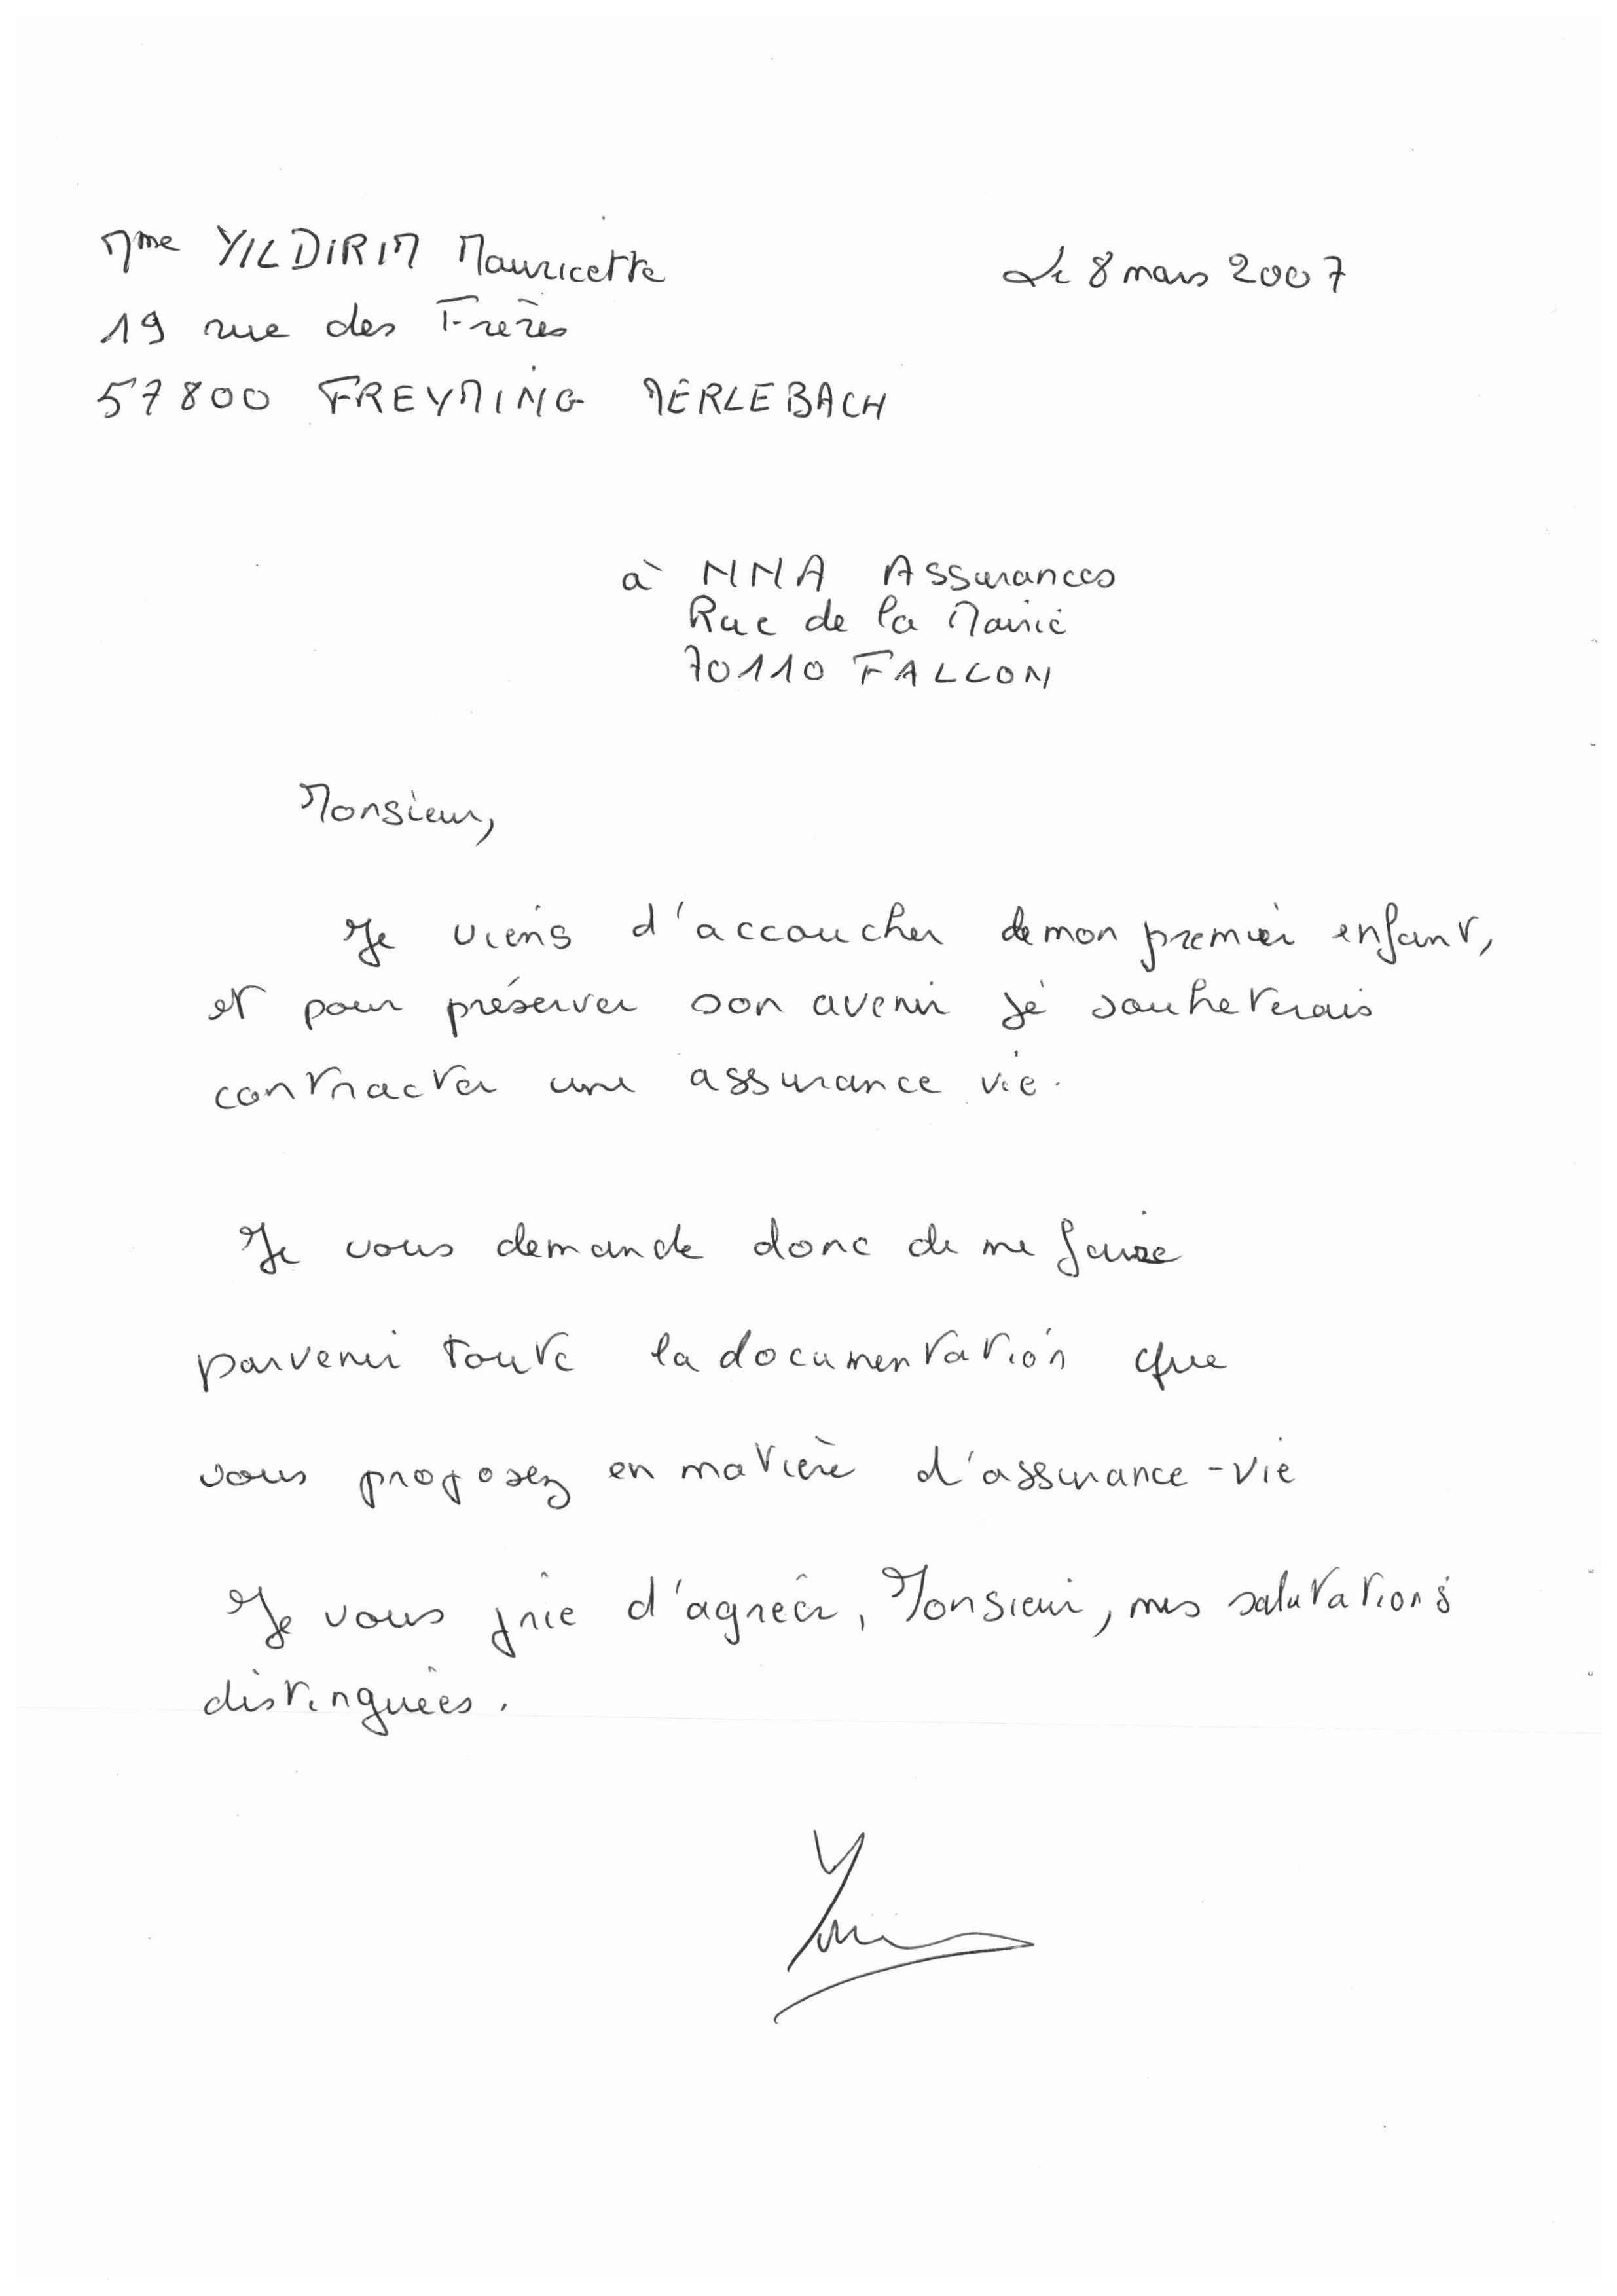 Mme YILDIRIM Mauricette
Le 8 mars 2007
19 rue des Frères
57800 FREYMING MERLEBACH
à NNA Assurances
Rue de la Mairie
70110 FALLON
Monsieur,
Je viens d'accoucher de mon premier enfant,
et pour préserver son avenir je souheterais
contracter une assurance vie.
Je vous demande donc de me faire
parvenir toute la documentation que
vous proposez en matière d'assurance-vie
Je vous prie d'agréer, Monsieur, mes salutations
distinguées.